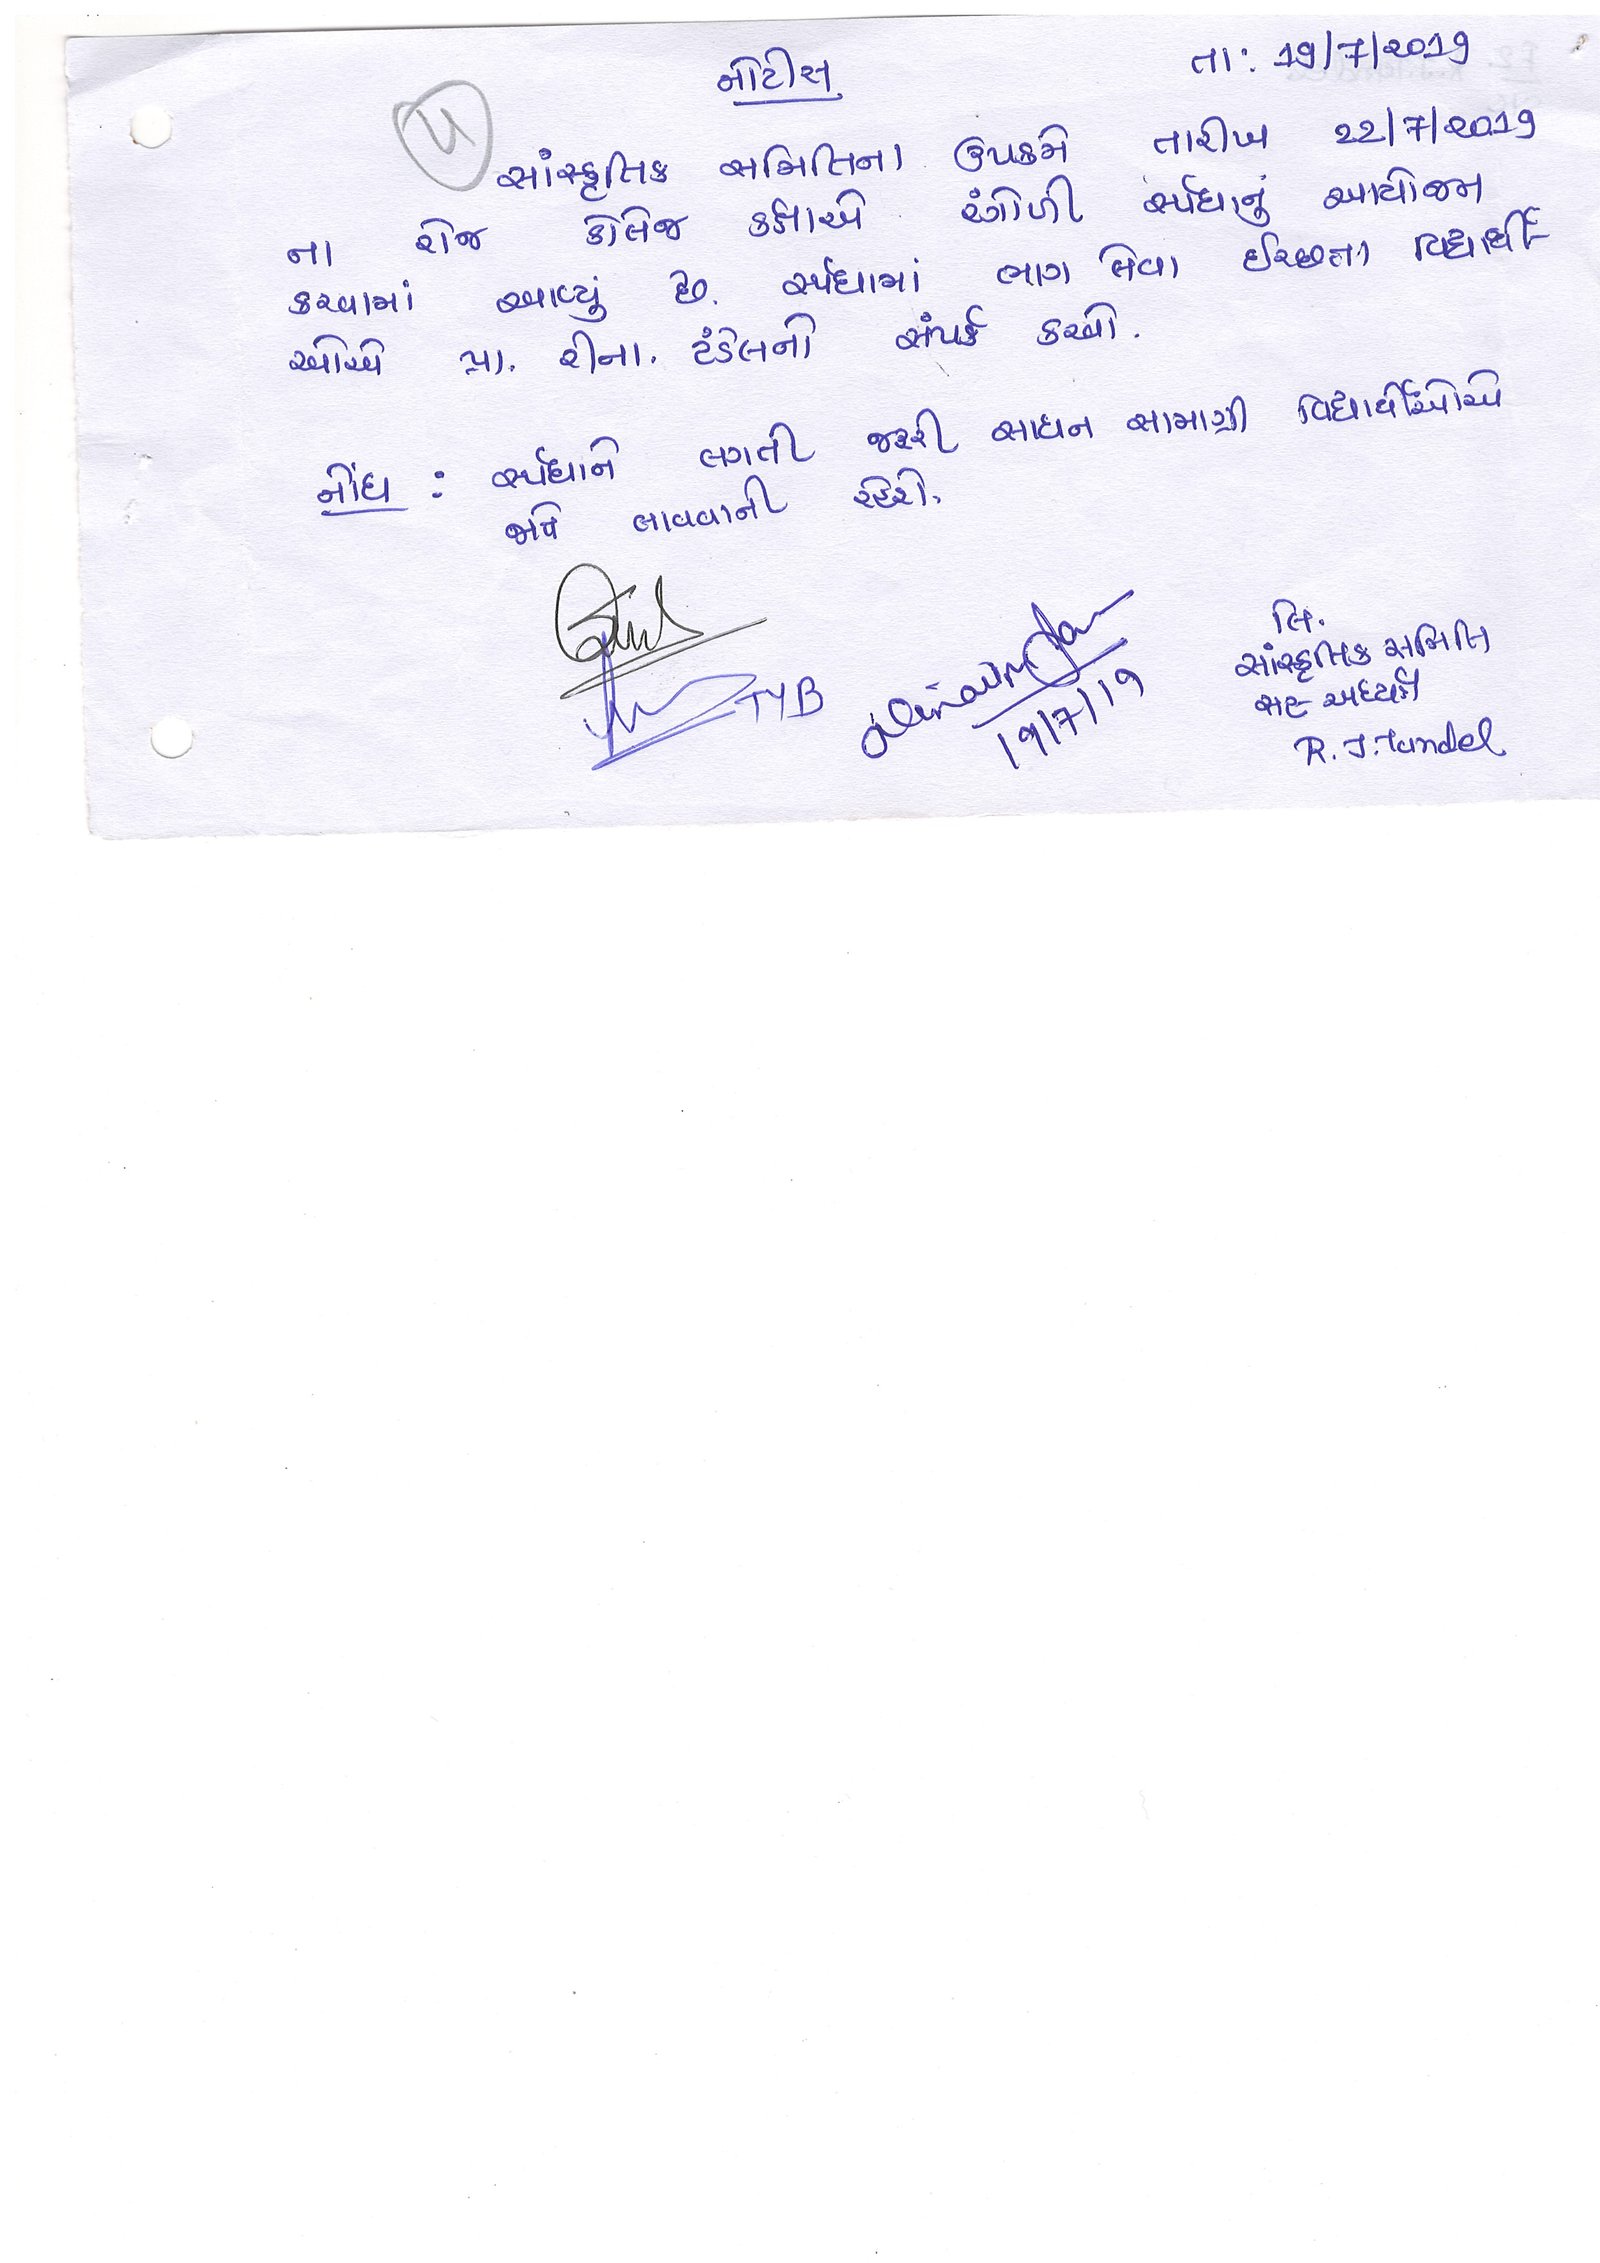 નોટીસ
તા: 19/7/2019
૫
સાંસ્કૃતિક સમિતિના ઉપક્રમે તારીખ 22/7/2019
ના રોજ કોલેજ કક્ષાએ રંગોળી સ્પર્ધાનું આયોજન
કરવામાં આવ્યું છે. સ્પર્ધામાં ભાગ લેવા ઈચ્છતા વિદ્યાર્થી-
ઓએ પ્રા. રીના. ટંડેલનો સંપર્ક કરવો.
નોંધ : સ્પર્ધાને લગતી જરૂરી સાધન સામાગ્રી વિદ્યાર્થીઓએ
જાતે લાવવાની રહેશે.
લિ.
સાંસ્કૃતિક સમિતિ
સહ અધ્યક્ષ
R. J. Tandel
TYB
19/7/19